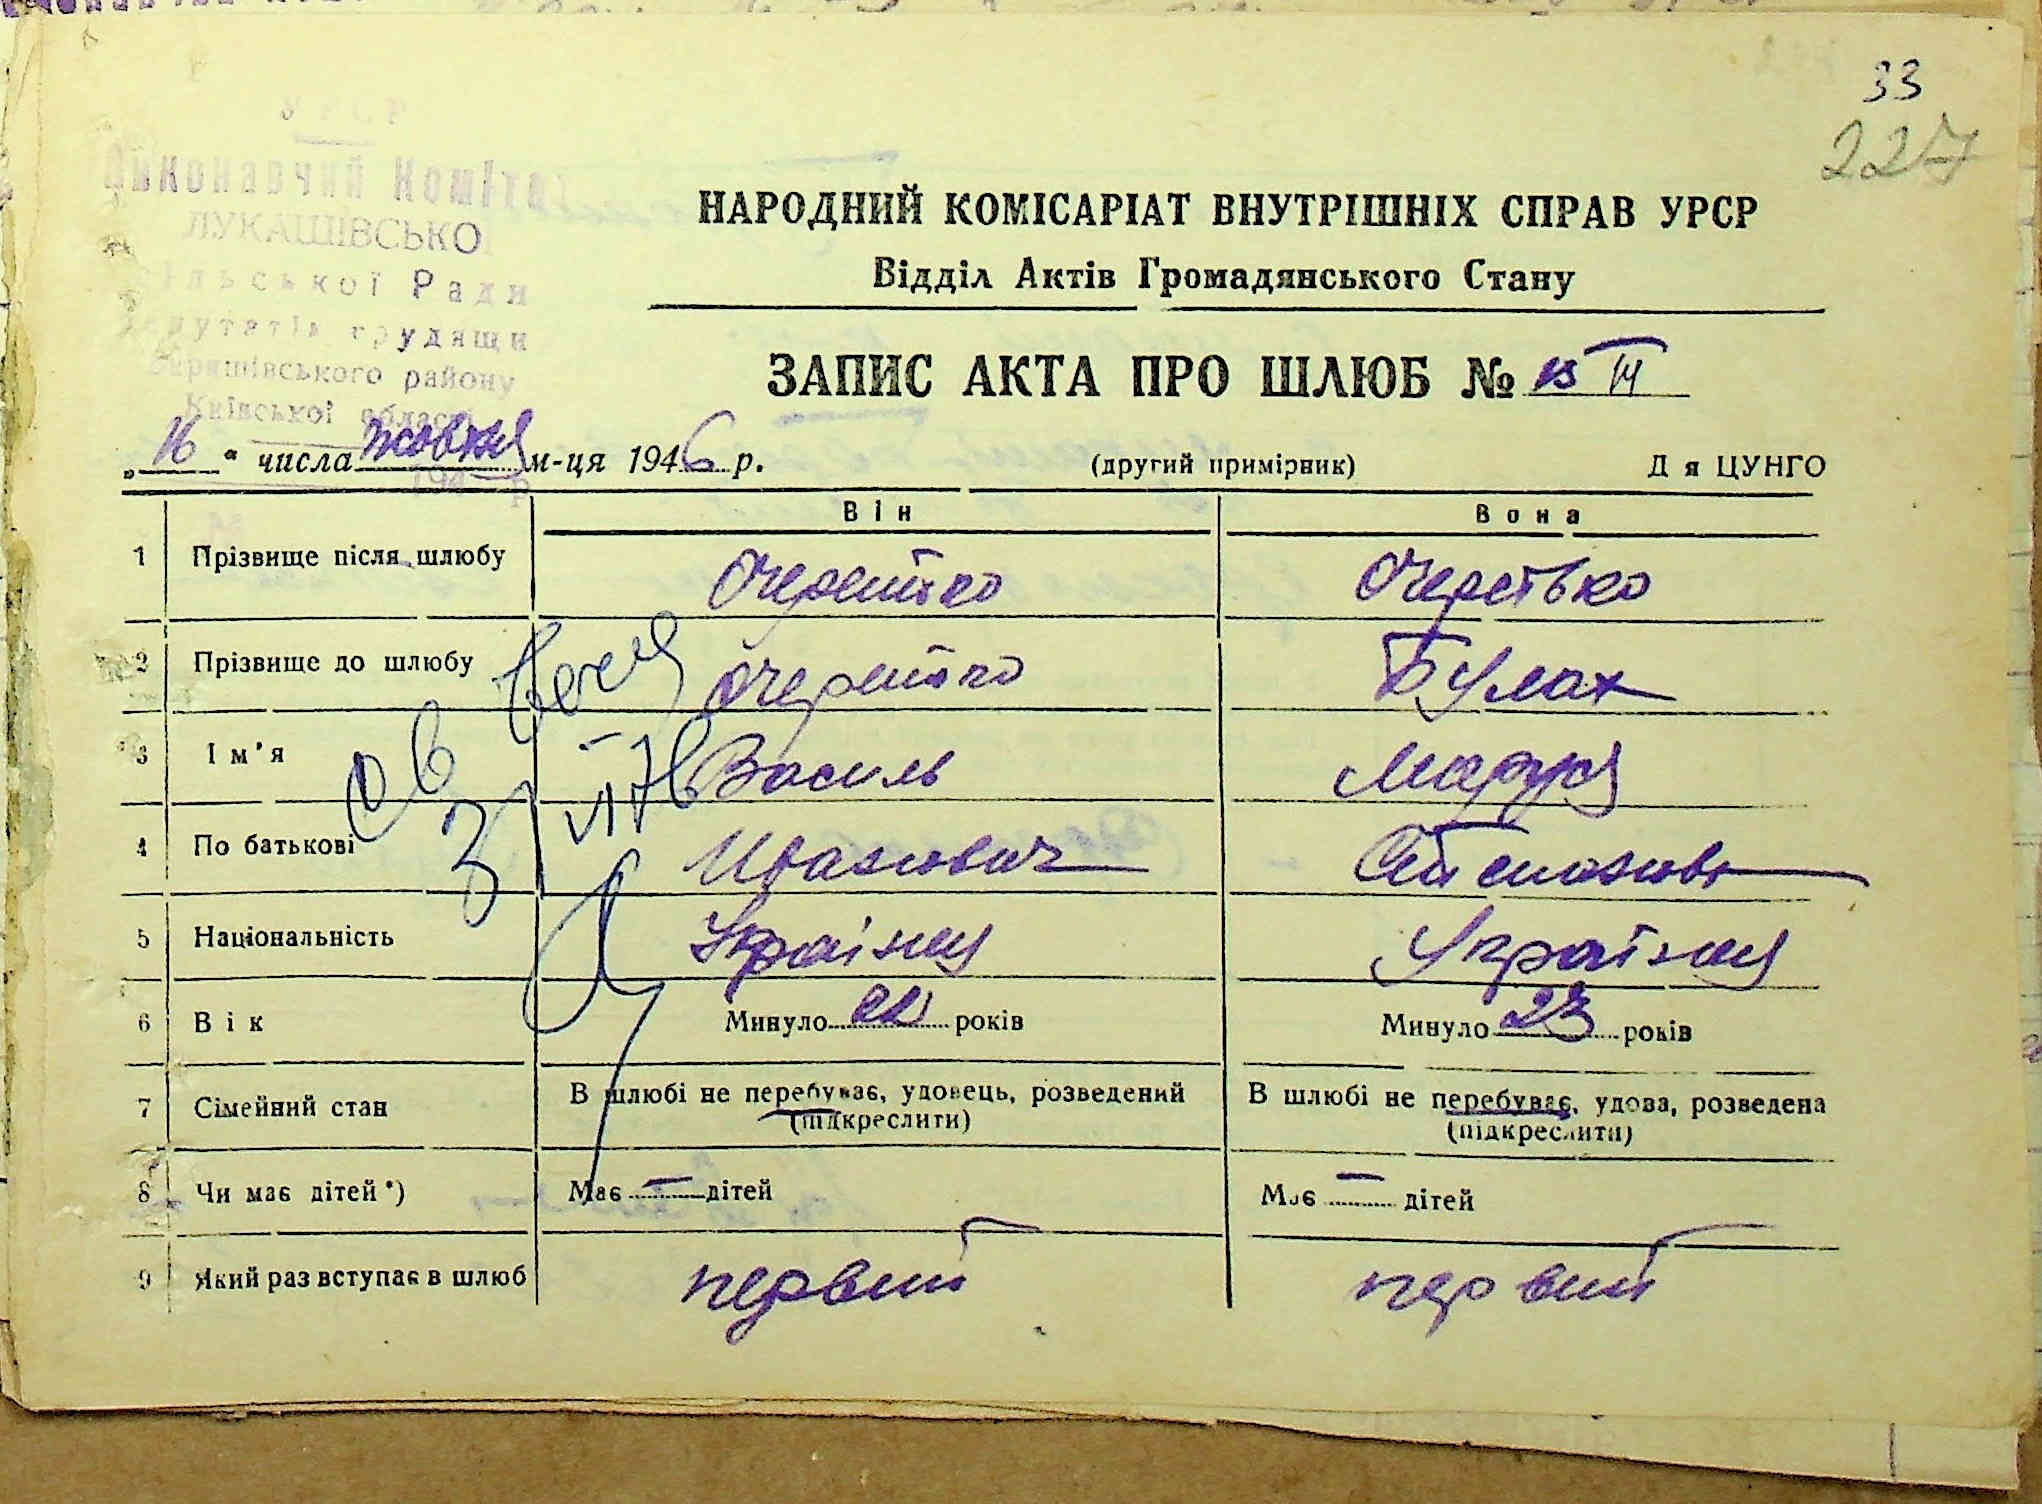 33
227
УРСР
Виконавчий Коміте
ЛУКАШІВСЬКО
сільської Ради
депутатів трудящи
району
Київської області
194 р
НАРОДНИЙ КОМІСАРІАТ ВНУТРІШНІХ СПРАВ УРСР
Відділ Актів Громадянського Стану
ЗАПИС АКТА ПРО ШЛЮБ №
„16“ числа жовтня м-ця 1946 р. (другий примірник) Д я ЦУНГО
Він Вона
1 Прізвище після шлюбу Очеретько Очеретько
2 Прізвище до шлюбу Очеретько Булах
3 Ім’я Василь Маруся
4 По батькові Иванович Степановн
5 Національність Українец Українец
6 Вік Минуло 22 років Минуло 23 років
7 Сімейний стан В шлюбі не перебуває, удовець, розведений (підкреслити) В шлюбі не перебуває, удова, розведена (підкреслити)
8 Чи має дітей*) Має — дітей Має — дітей
9 Який раз вступає в шлюб первий первий